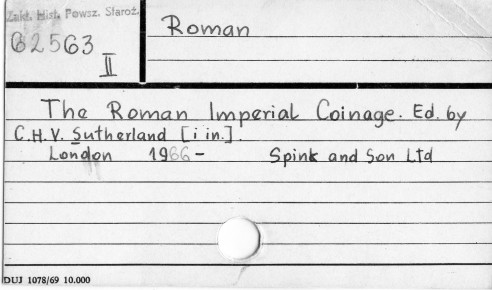 Zakł. Hist. Powsz. Staroż.
62563
II
Roman
The Roman Imperial Coinage. Ed. by
C.H.V. Sutherland [i in.].
London 1966- Spink and Son Ltd
DUJ 1078/69 10.000